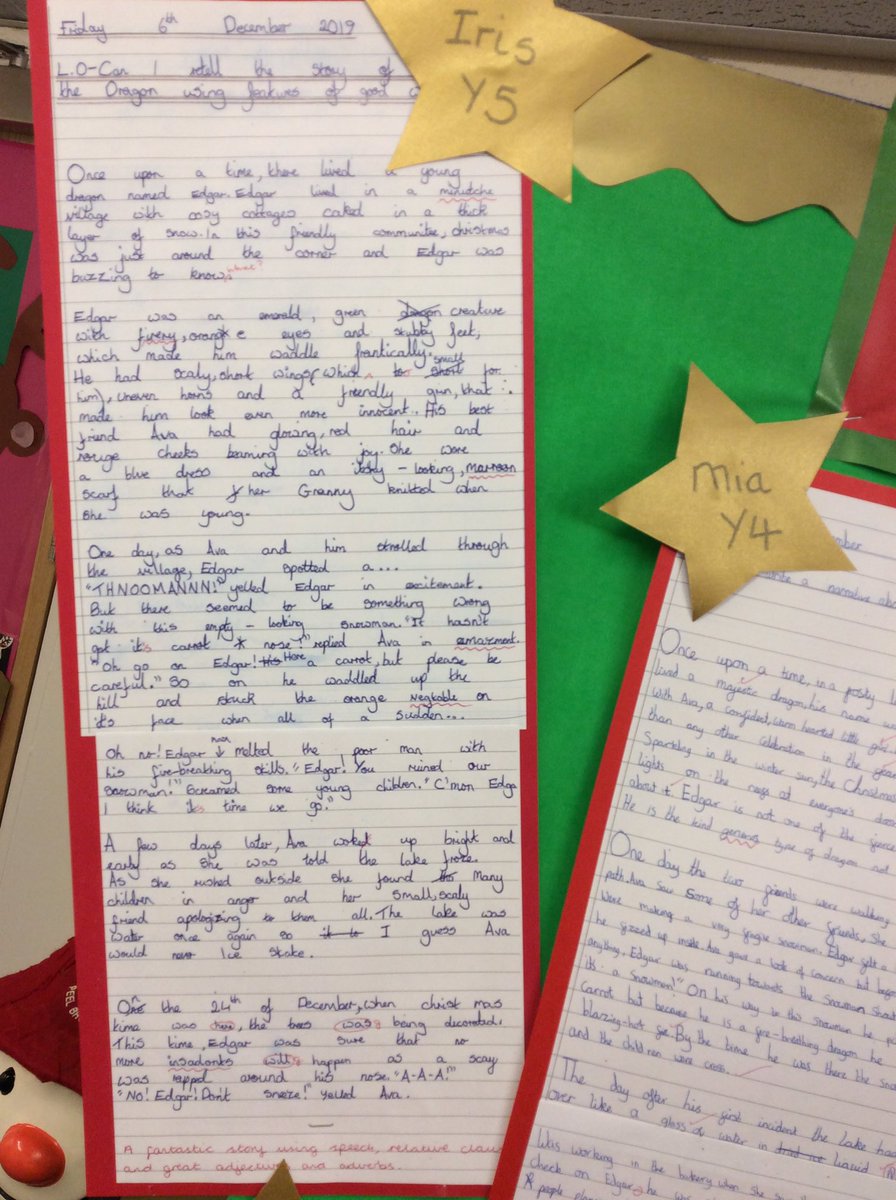 Friday 6th December 2019
L.O-Can I retell the story of
the Dragon using features of good
Iris
Y5
Once upon a time, there lived a young
dragon named Edgar. Edgar lived in a minutche
village with cosy cottages caked in a thick
layer of snow. In this friendly communitee, christmas
was just around the corner and Edgar was
buzzing to know.
Edgar was an emerald, green dragon creative
with firery, orang e eyes and stubby feet,
which made him waddle frantically.
He had scaly, short wings (which to short small for
him), uneven horns and a friendly gun, that
made him look even more innocent. His best
friend Ava had glowing, red hair and
rouge cheeks beaming with joy. She wore
a blue dress and an itchy-looking, marroon
scarf that her Granny knitted when
she was young.
One day, as Ava and him strolled through
the village, Edgar spotted a...
"THNOOMANNN!" yelled Edgar in excitement.
But there seemed to be something wrong
with this empty-looking snowman. "It hasn't
got it's carrot nose!" replied Ava in amazment.
"Oh go on Edgar! Here a carrot, but please be
careful." So on he waddled up the
hill and stuck the orange negtable on
it's face when all of a sudden...
Oh no! Edgar had melted the poor man with
his fire-breathing skills. "Edgar! You ruined our
snowman!" Screamed some young children. "C'mon Edga
I think it's time we go."
A few days later, Ava woked up bright and
early as she was told the lake froze.
As she rushed outside she found many
children in anger and her small, scaly
friend apologizing to them all. The lake was
water once again so it to I guess Ava
would never Ice Skake.
On the 24th of December, when christ mas
time was here, the trees was being decorated.
This time, Edgar was sure that no
more insadonks will happen as a scay
was rapped around his nose. "A-A-A!"
"No! Edgar! Don't sneeze!" yelled Ava.
A fantastic story using speech, relative clau
and great adjectives and adverbs.
Mia
Y4
mber
write a narrative abo
Once upon a time, in a posty
lived a majestic dragon, his name
with Ava, a confident, warm hearted little
than any other celebration in the
Sparkling in the winter sun, the Christmas
lights on the roofs at everyone's
about it. Edgar is not one of the fierce
He is the kind generus type of dragon not
One day the two friends were walking
path. Ava saw some of her other friends, she
were making a very jangue snowman. Edgar felt a
he fizzed up inside. Ava gave a look of concern but before
anything, Edgar was running towards the snowman shout
it's a Snowman!" On his way to the snowman he p
carrot but because he is a fire-breathing dragon he
blazing-hot fire. By the time he was there the snow
and the children were cross.
The day after his first incident the lake had
over like a glass of water in liquid
Was working in the bakery when she
check on Edgar, he was
people
PEEL